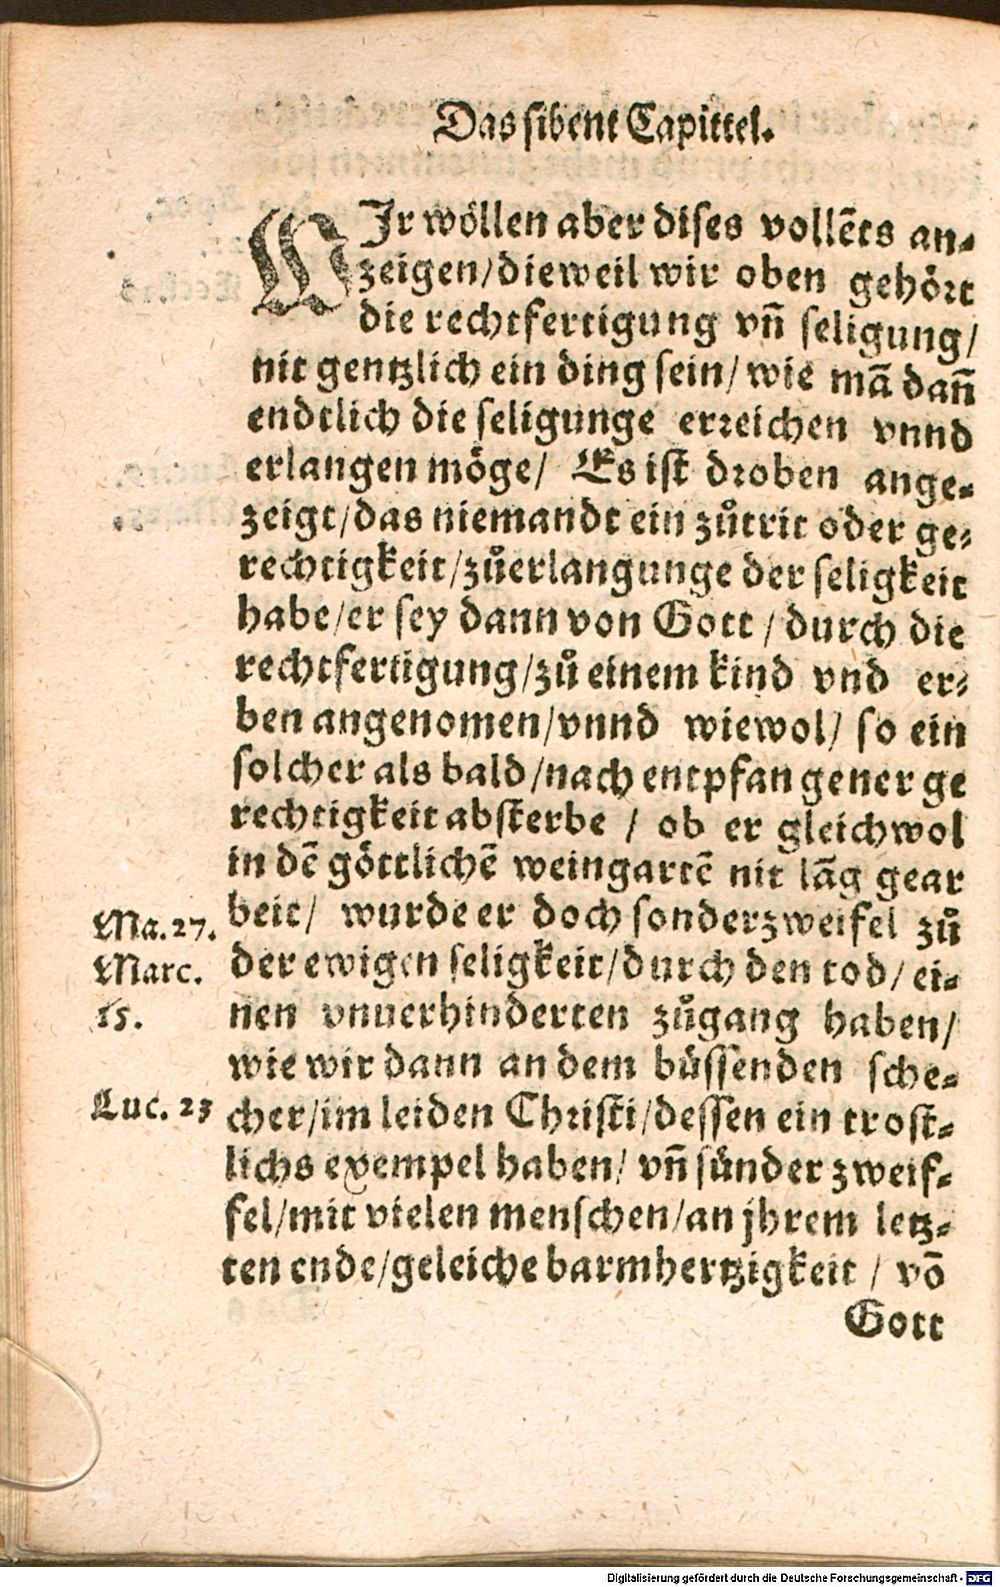 Das sibent Capittel.
WIr wöllen aber dises vollēts an-
zeigen/dieweil wir oben gehört
die rechtfertigung vn̄ seligung/
nit gentzlich ein ding sein/wie mā dan̄
endtlich die seligunge erreichen vnnd
erlangen möge/ Es ist droben ange-
zeigt/das niemandt ein zůtrit oder ge-
rechtigkeit/zůerlangunge der seligkeit
habe/er sey dann von Gott/durch die
rechtfertigung/zů einem kind vnd er-
ben angenomen/vnnd wiewol/ so ein
solcher als bald/nach entpfangener ge
rechtigkeit absterbe / ob er gleichwol
in dē göttlichē weingartē nit lāg gear
Ma. 27. beit/ wurde er doch sonder zweifel zů
Marc. der ewigen seligkeit/durch den tod/ei-
15. nen vnuerhinderten zůgang haben/
wie wir dann an dem büssenden sche-
Luc. 23 cher/im leiden Christi/dessen ein trost-
lichs exempel haben/ vn̄ sünder zweif-
fel/mit vielen menschen/an jhrem letz-
ten ende/geleiche barmhertzigkeit / vō
Gott
Digitalisierung gefördert durch die Deutsche Forschungsgemeinschaft - DFG